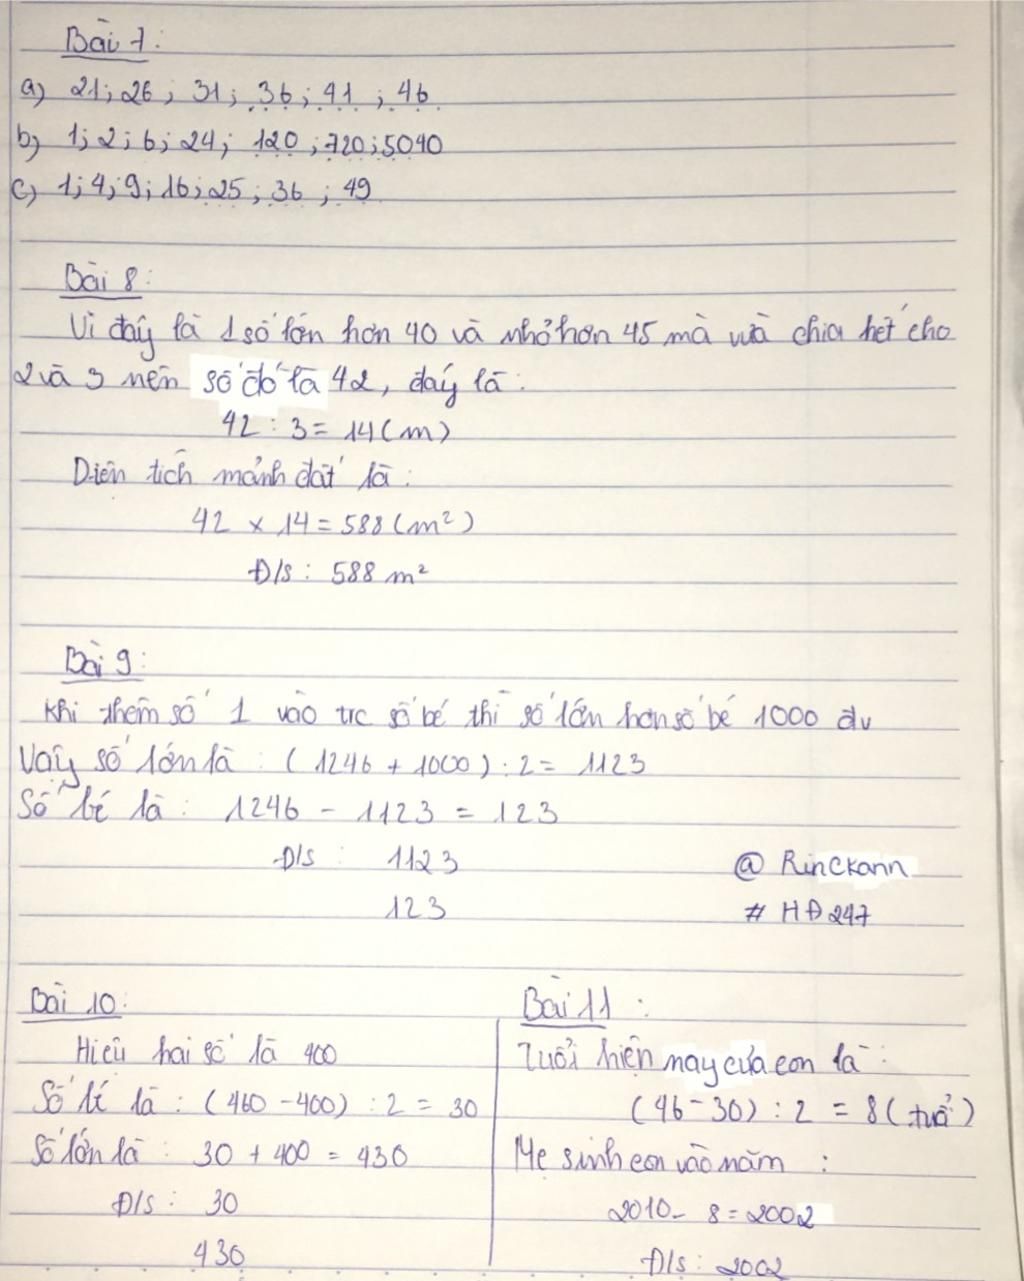 Bài 7:
a) 21; 26; 31; 36; 41; 46
b) 1; 2; 6; 24; 120; 720; 5040
c) 1; 4; 9; 16; 25; 36; 49
Bài 8:
Vì đây là 1 số lớn hơn 40 và nhỏ hơn 45 mà vừa chia hết cho
2 và 3 nên số đó là 42, đáy là:
42 : 3 = 14 (m)
Diện tích mảnh đất là:
42 x 14 = 588 (m²)
Đ/S: 588 m²
Bài 9:
Khi thêm số 1 vào trc số bé thì số lớn hơn số bé 1000 đv
Vậy số lớn là: (1246 + 1000) : 2 = 1123
Số bé là: 1246 - 1123 = 123
Đ/S: 1123
123
@ Rinckann
# HĐ247
Bài 10:
Hiệu hai số là 400
Số bé là: (460 - 400) : 2 = 30
Số lớn là: 30 + 400 = 430
Đ/S: 30
430
Bài 11:
Tuổi hiện nay của con là:
(46 - 30) : 2 = 8 (tuổi)
Mẹ sinh con vào năm:
2010 - 8 = 2002
Đ/S: 2002